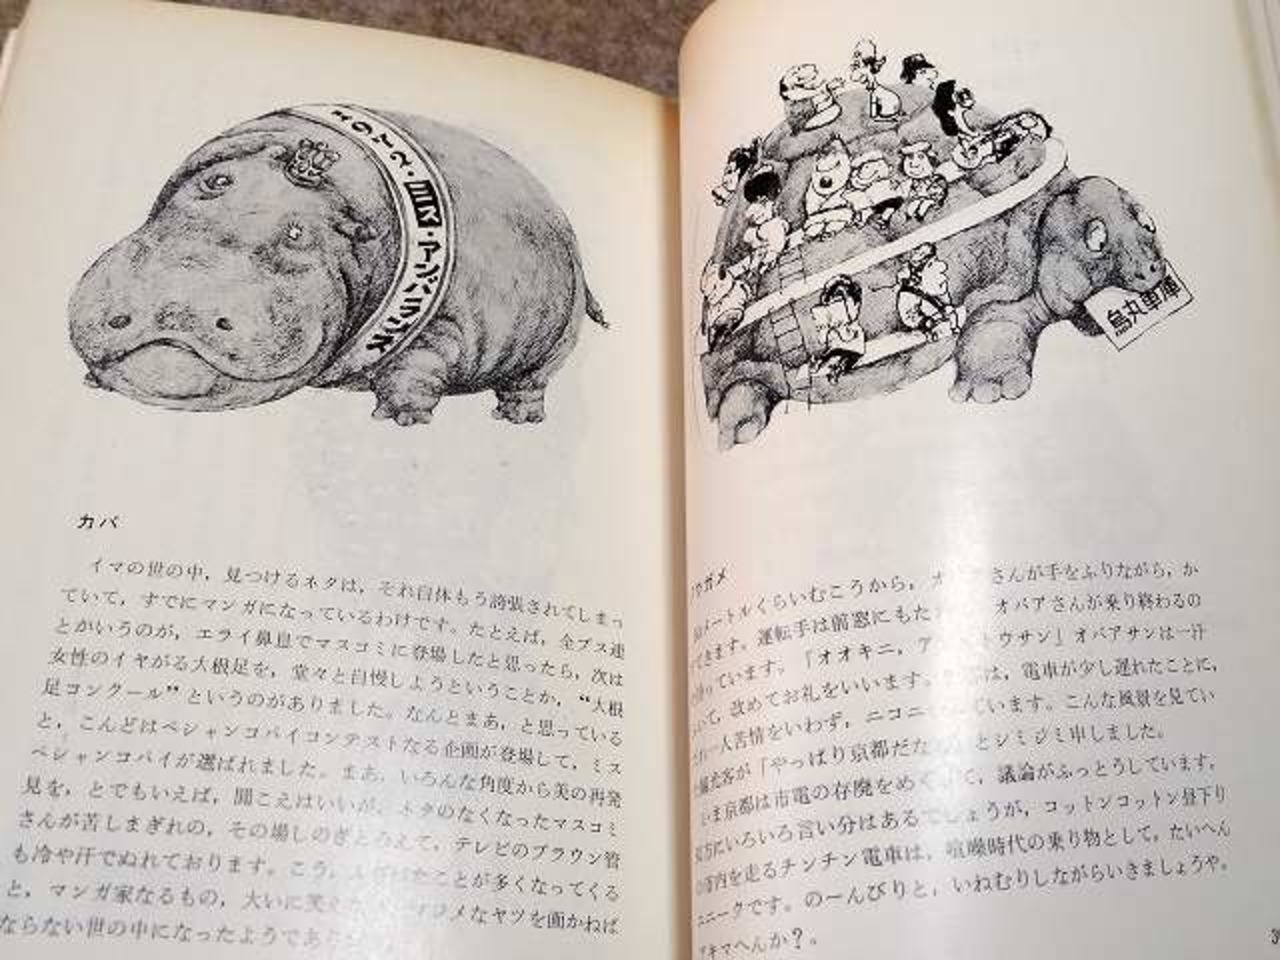 ミス・アンバランス
カバ
イマの世の中，見つけるネタは，それ自体もう誇張されてしまっ
ていて，すでにマンガになっているわけです。たとえば，全ブス連
とかいうのが，エライ鼻息でマスコミに登場したと思ったら，次は
女性のイヤがる大根足を，堂々と自慢しようということか，“大根
足コンクール”というのがありました。なんとまあ，と思っている
と，こんどはペシャンコパイコンテストなる企画が登場して，ミス
ペシャンコパイが選ばれました。まあ，いろんな角度から美の再発
見を，とでもいえば，聞こえはいいが，ネタのなくなったマスコミ
さんが苦しまぎれの，その場しのぎ
て，テレビのブラウン管
も冷や汗でぬれております。こう，
ことが多くなってくる
と，マンガ家なるもの，大いに笑
なヤツを画かねば
ならない世の中になったようであ
烏丸車庫
メートルくらいむこうから，オ
さんが手をふりながら，か
てきます。運転手は前窓にもた
オバアさんが乗り終わるの
っています。「オオキニ，ア
トウサン」オバアサンは一汗
いて，改めてお礼をいいます。
は，電車が少し遅れたことに，
一人苦情をいわず，ニコニ
ています。こんな風景を見てい
観光客が「やっぱり京都だな
とシミジミ申しました。
いま京都は市電の存廃をめぐ
て，議論がふっとうしています。
双方にいろいろ言い分はあるでしょうが，コットンコットン昼下り
の市内を走るチンチン電車は，喧噪時代の乗り物として，たいへん
ユニークです。のーんびりと，いねむりしながらいきましょうや。
キマヘんか？。